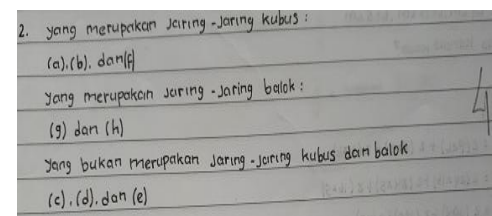 2. yang merupakan jaring-jaring kubus :
(a), (b), dan(f)
yang merupakan jaring-jaring balok :
(g) dan (h)
yang bukan merupakan jaring-jaring kubus dan balok
(c), (d), dan (e)
4